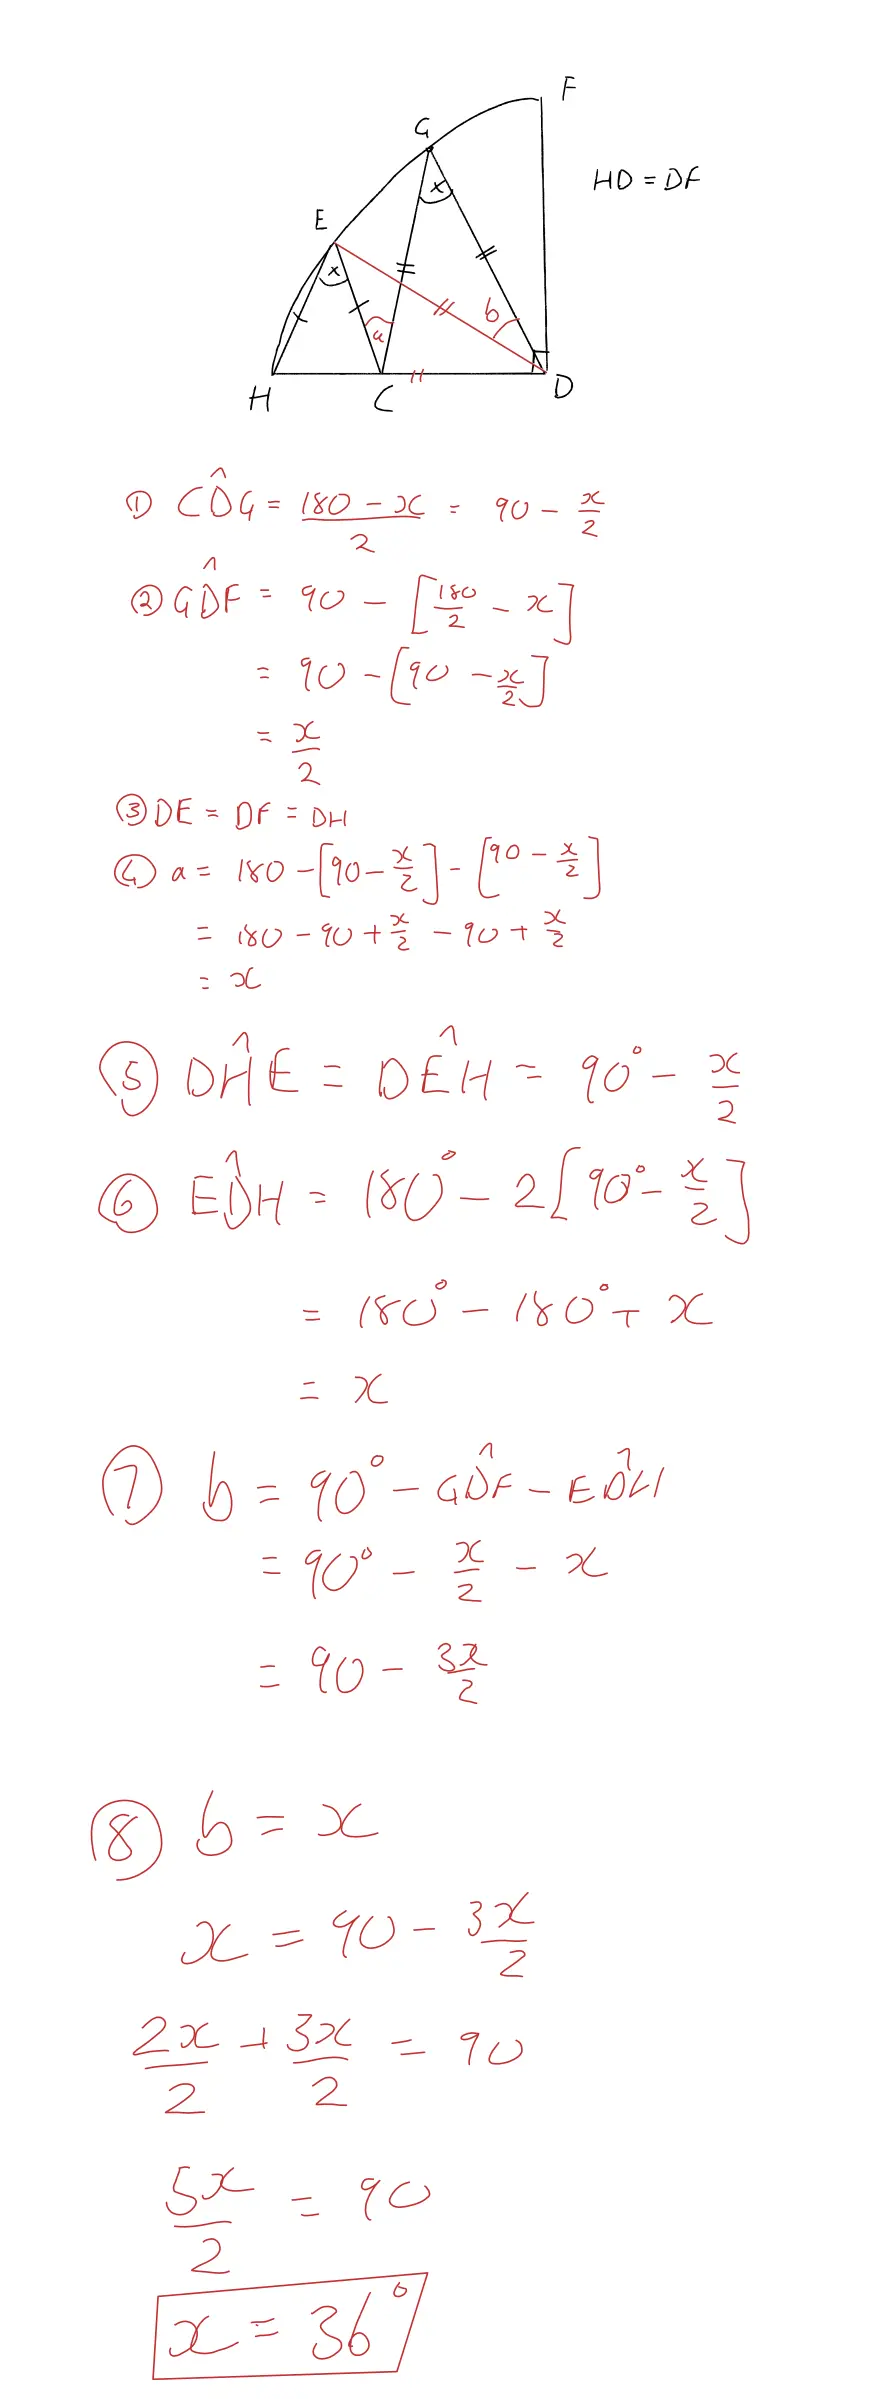 F
G
x
HD = DF
E
x
a
b
H
C
D
① CD̂G = (180 - x)/2 = 90 - x/2
② GD̂F = 90 - [180/2 - x]
= 90 - [90 - x/2]
= x/2
③ DE = DF = DH
④ a = 180 - [90 - x/2] - [90 - x/2]
= 180 - 90 + x/2 - 90 + x/2
= x
⑤ DĤE = DÊH = 90° - x/2
⑥ ED̂H = 180° - 2[90° - x/2]
= 180° - 180° + x
= x
⑦ b = 90° - GD̂F - ED̂H
= 90° - x/2 - x
= 90 - 3x/2
⑧ b = x
x = 90 - 3x/2
2x/2 + 3x/2 = 90
5x/2 = 90
x = 36°